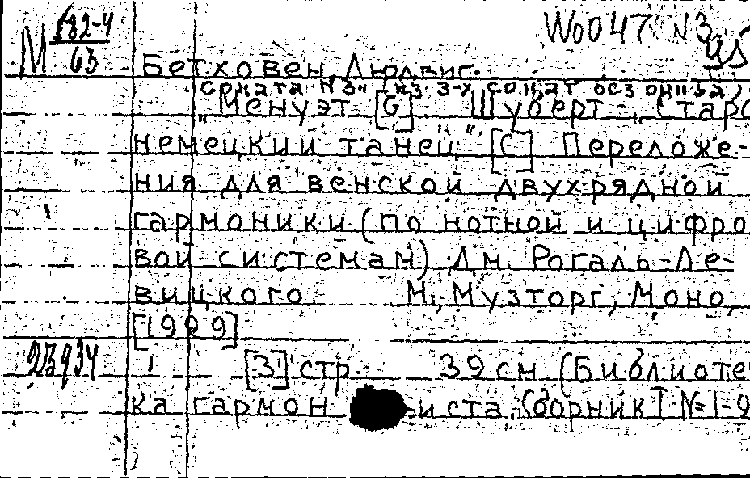 М 182-4
63
Wo047 N3
Бетховен, Людвиг.
Соната N3" (из 3-х сонат
„Менуэт [G] Шуберт „Старо
немецкий танец" [C] Переложе-
ния для венской двухрядной
гармоники (по нотной и цифро
вой системам) Дм. Рогаль-Ле-
вицкого М, Музторг, Моно
[1929]
23934 1 [3] стр. 39 см (Библиоте
ка гармон иста. Сборник] №1-